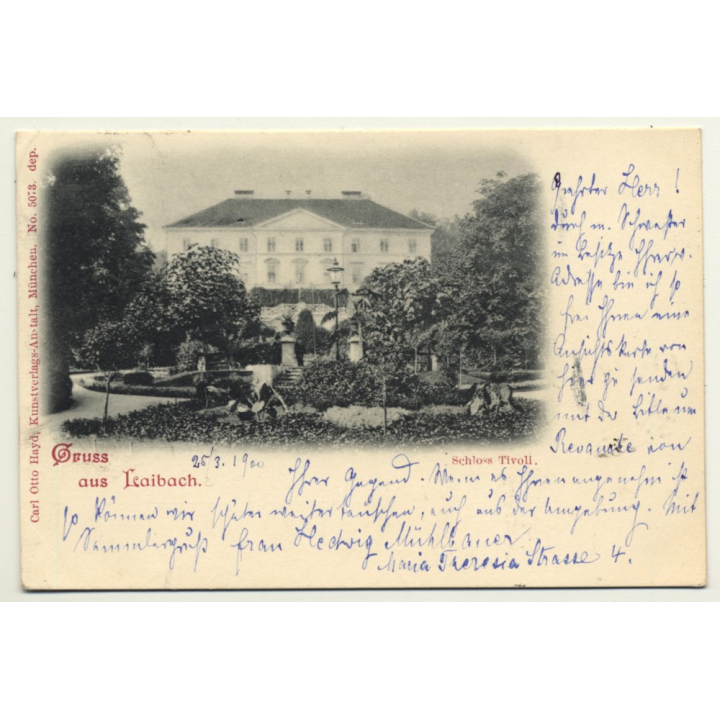 Carl Otto Hayd, Kunstverlags-Anstalt, München. No. 5073. dep.
Gruss
aus Laibach.
25/3. 1900
Schloss Tivoli.
Geehrter Herr!
durch m. Schwester
im Besitze Ihrer w.
Adresse bin ich so
frei Ihnen eine
Ansichtskarte von
hier zu senden
mit der Bitte um
Revanche von
Ihrer Gegend. Wenn es Ihnen angenehm ist
so können wir später weitertauschen, auch aus der Umgebung. Mit
Sammlergruß Frau Hedwig Mühlbauer
Maria Theresia Strasse 4.